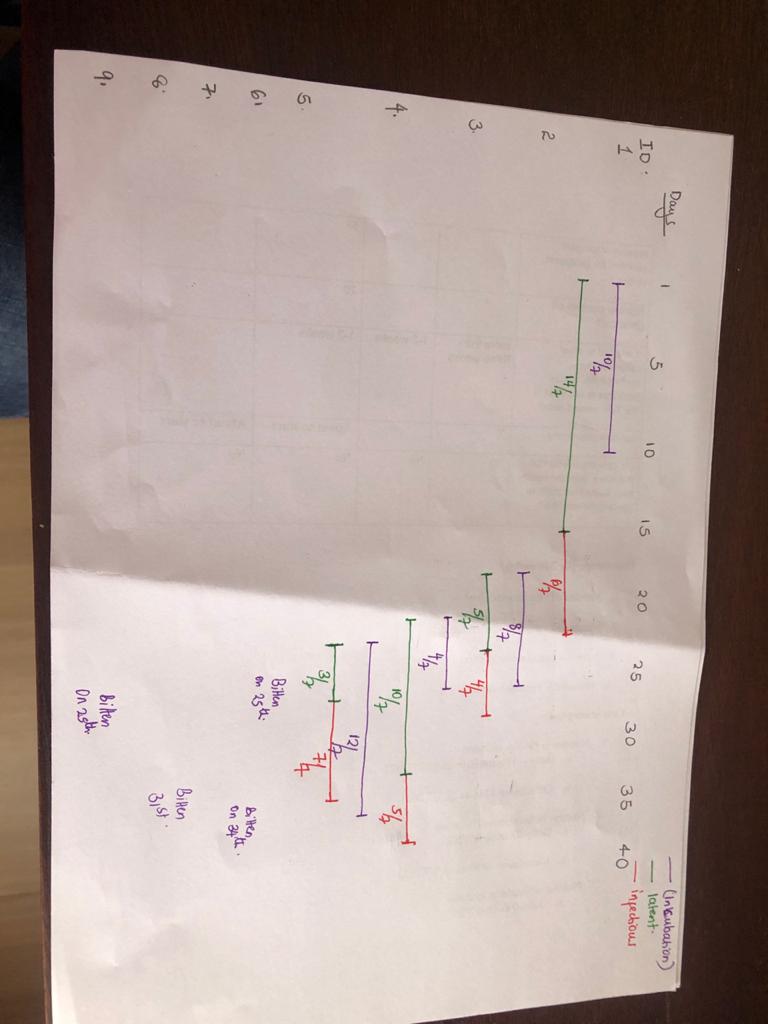 Days 1 5 10 15 20 25 30 35 40
(Incubation)
latent.
infectious
ID.
1
10/7
14/7
6/7
2
8/7
5/7
4/7
3.
4/7
10/7
5/7
4.
12/7
3/7
7/7
5.
Bitten
on 25th.
6.
Bitten
On 34th.
7.
Bitten
31st.
8.
Bitten
On 25th.
9.